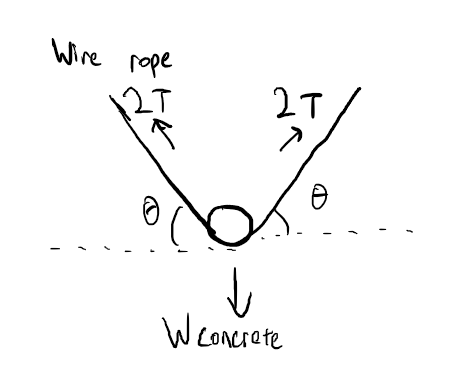 Wire rope
2T
2T
θ
θ
Wconcrete